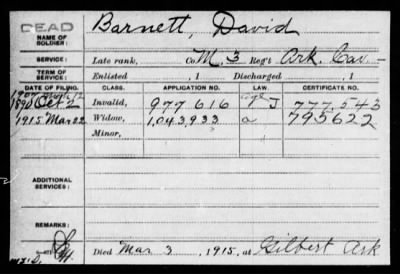 DEAD
Barnett, David
NAME OF SOLDIER:
SERVICE: Late rank, Co. M, 3 Reg't Ark. Cav
TERM OF SERVICE: Enlisted , 1 Discharged , 1
DATE OF FILING. CLASS. APPLICATION NO. LAW. CERTIFICATE NO.
1907
1890 Oct 2 Invalid, 977,616 J 777,543
1915 Mar 22 Widow, 1,043,933 a 795622
Minor,
ADDITIONAL SERVICES:
REMARKS:
Died Mar 3, 1915, at Gilbert Ark